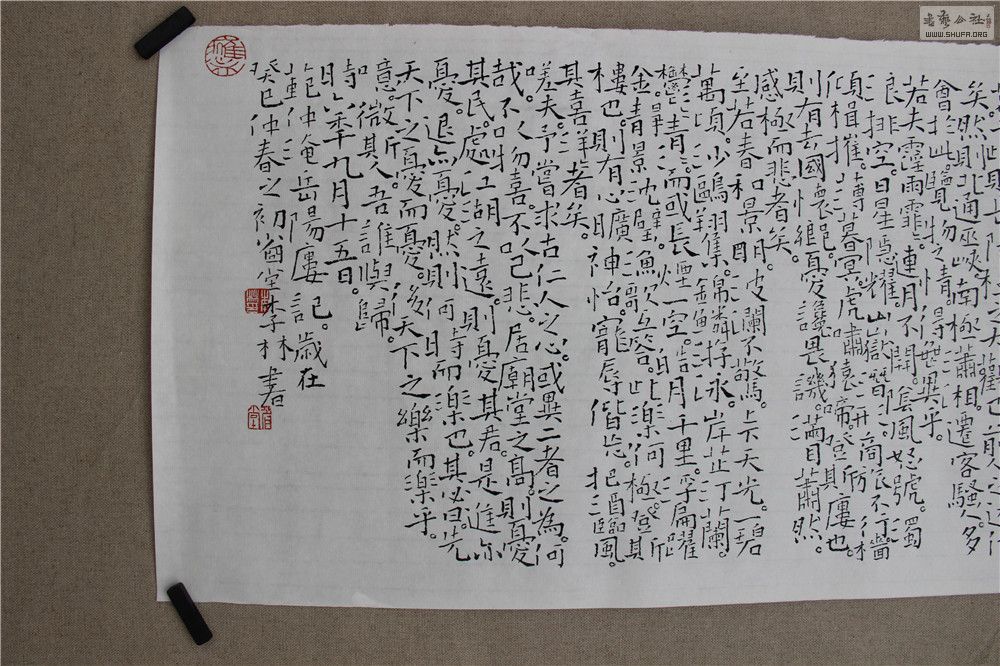 此則岳陽樓之大觀也。前人之述備
矣。然則北通巫峽。南極瀟湘。遷客騷人。多
會於此。覽物之情。得無異乎。
若夫霪雨霏霏。連月不開。陰風怒號。濁
浪排空。日星隱耀。山嶽潛形。商旅不行。檣
傾楫摧。薄暮冥冥。虎嘯猿啼。登斯樓也。
則有去國懷鄉。憂讒畏譏。滿目蕭然。
感極而悲者矣。
至若春和景明。波瀾不驚。上下天光。一碧
萬頃。沙鷗翔集。錦鱗游泳。岸芷汀蘭。
鬱鬱青青。而或長煙一空。皓月千里。浮光躍
金。靜影沈璧。漁歌互答。此樂何極。登斯
樓也。則有心曠神怡。寵辱偕忘。把酒臨風。
其喜洋洋者矣。
嗟夫。予嘗求古仁人之心。或異二者之為。何
哉。不以物喜。不以己悲。居廟堂之高。則憂
其民。處江湖之遠。則憂其君。是進亦
憂。退亦憂。然則何時而樂也。其必曰先
天下之憂而憂。後天下之樂而樂乎。
噫。微斯人吾誰與歸。
時六年九月十五日。
范仲淹岳陽樓記。歲在
癸巳仲春之初 李林書
書藝公社
WWW.SHUFA.ORG